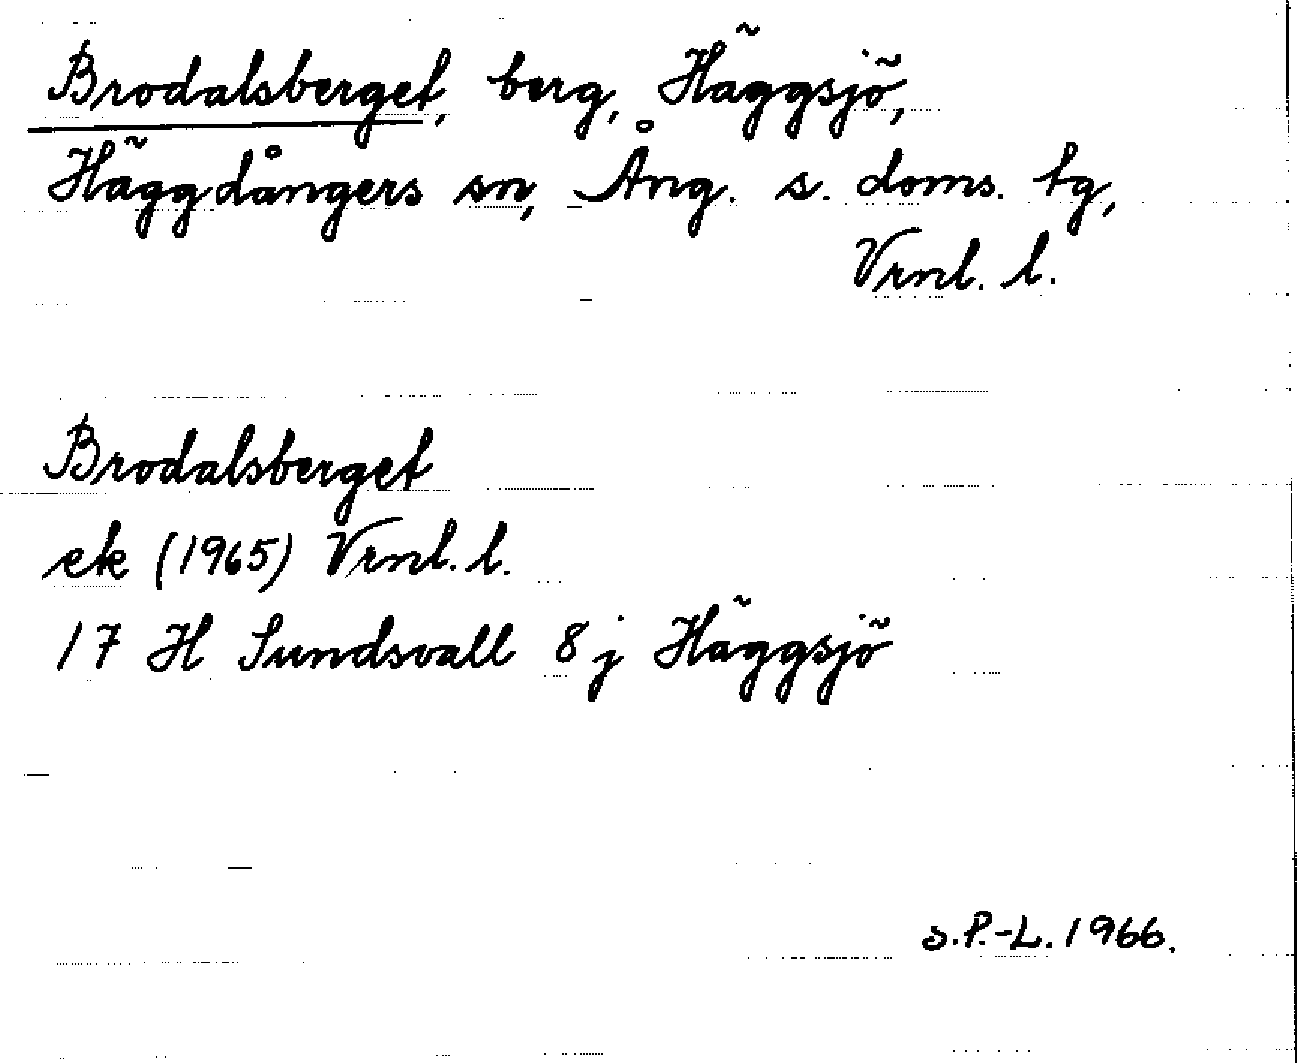 Brodalsberget, berg, Häggsjö,
Häggdångers sn, Ång. s. doms. tg,
Vrnl. l.
Brodalsberget
ek (1965) Vrnl. l.
17 H Sundsvall 8 j Häggsjö
s.P.-L. 1966.